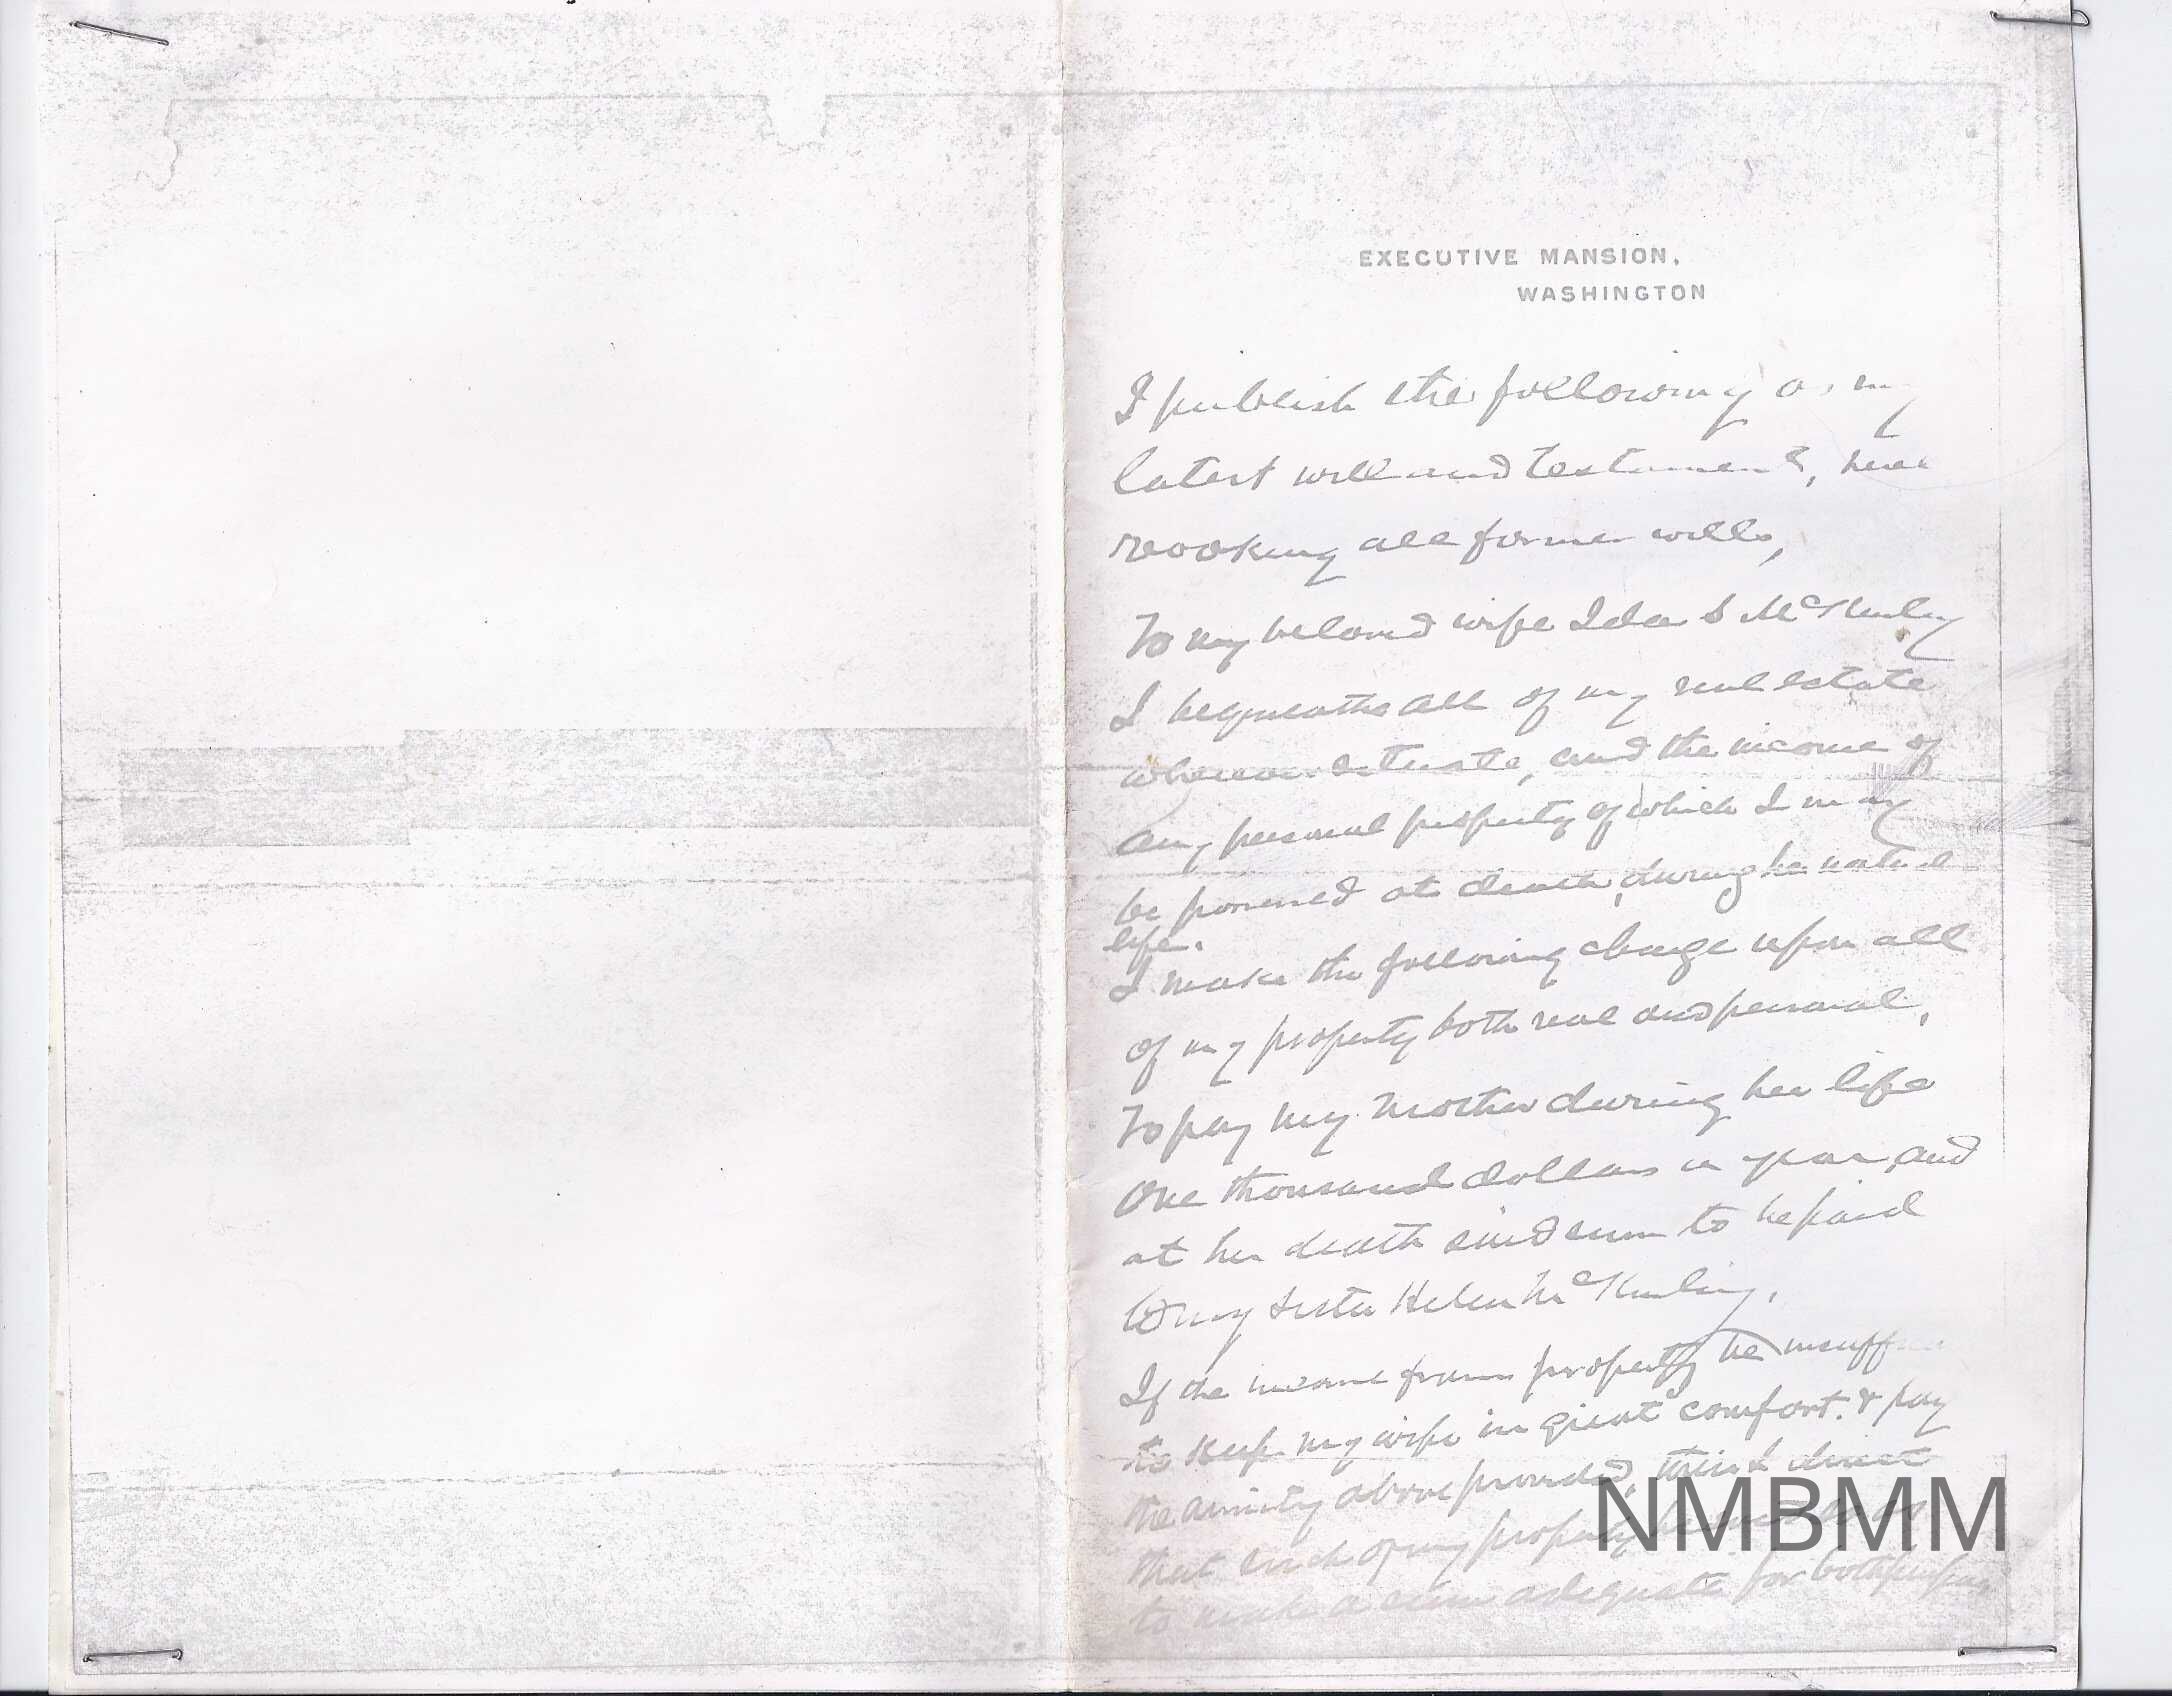 EXECUTIVE MANSION,
WASHINGTON
I publish the following as my
latest will and testament, here
revoking all former wills,
To my beloved wife Ida S McKinley
I bequeathe all of my real estate
wherever situate, and the income of
any personal property of which I may
be possessed at death, during her natural
life.
I make the following charge upon all
of my property both real and personal,
To pay my mother during her life
One thousand dollars a year, and
at her death said sum to be paid
to my sister Helen McKinley.
If the income from property be
to keep my wife in great comfort. & pay
the annuity above provided, then I direct
that such of my property be
to make a sum adequate for both purposes
NMBMM